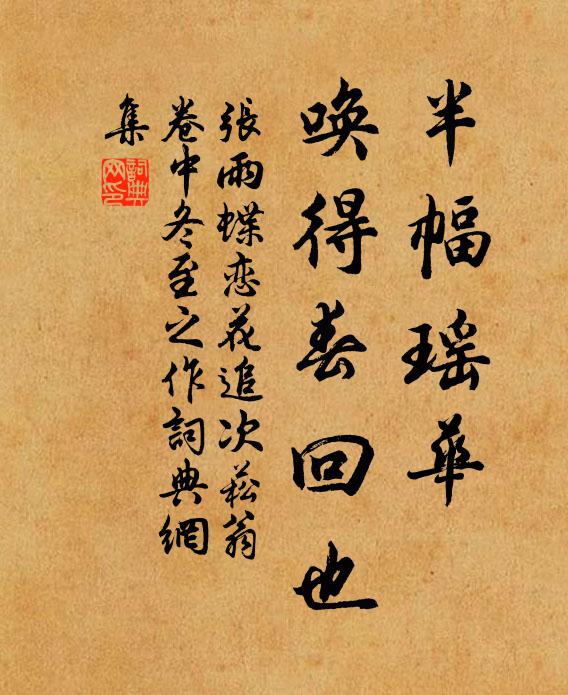 半幅瑶華
喚得春回也
張雨蝶恋花追次菘翁
卷中冬至之作詞典網
集
詞典
网印